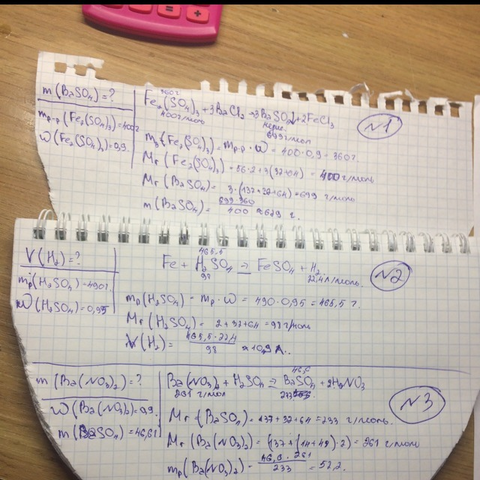 m(BaSO₄)=?
mр-р(Fe₂(SO₄)₃)=400г
ω(Fe₂(SO₄)₃)=0,9.
360г
Fe₂(SO₄)₃+3BaCl₂→3BaSO₄↓+2FeCl₃
400г/моль
699г/моль
№1
(Fe₂(SO₄)₃)=mр-р·ω=400·0,9=360г
Mr(Fe₂(SO₄)₃)=56·2+3(32+64)=400г/моль
Mr(BaSO₄)=3·(137+32+64)=699 г/моль
m(BaSO₄)=699·360/400≈629 г.
V(H₂)=?
(H₂SO₄)=490г
ω(H₂SO₄)=0,95
465,5
Fe+H₂SO₄=FeSO₄+H₂
98
22,4л/моль.
№2
mр(H₂SO₄)=mр·ω=490·0,95=465,5 г.
Mr(H₂SO₄)=2+32+64=98г/моль
V(H₂)=465,5·22,4/98
m(Ba(NO₃)₂)=?
ω(Ba(NO₃)₂)=0,9.
m(BaSO₄)=46,6г
46,6
Ba(NO₃)₂+H₂SO₄=BaSO₄+2HNO₃
261г/моль
№3
Mr(BaSO₄)=137+32+64=233 г/моль.
Mr(Ba(NO₃)₂)=(137+(14+48)·2)=261г/моль
mр(Ba(NO₃)₂)=46,6·261/233=52,2.